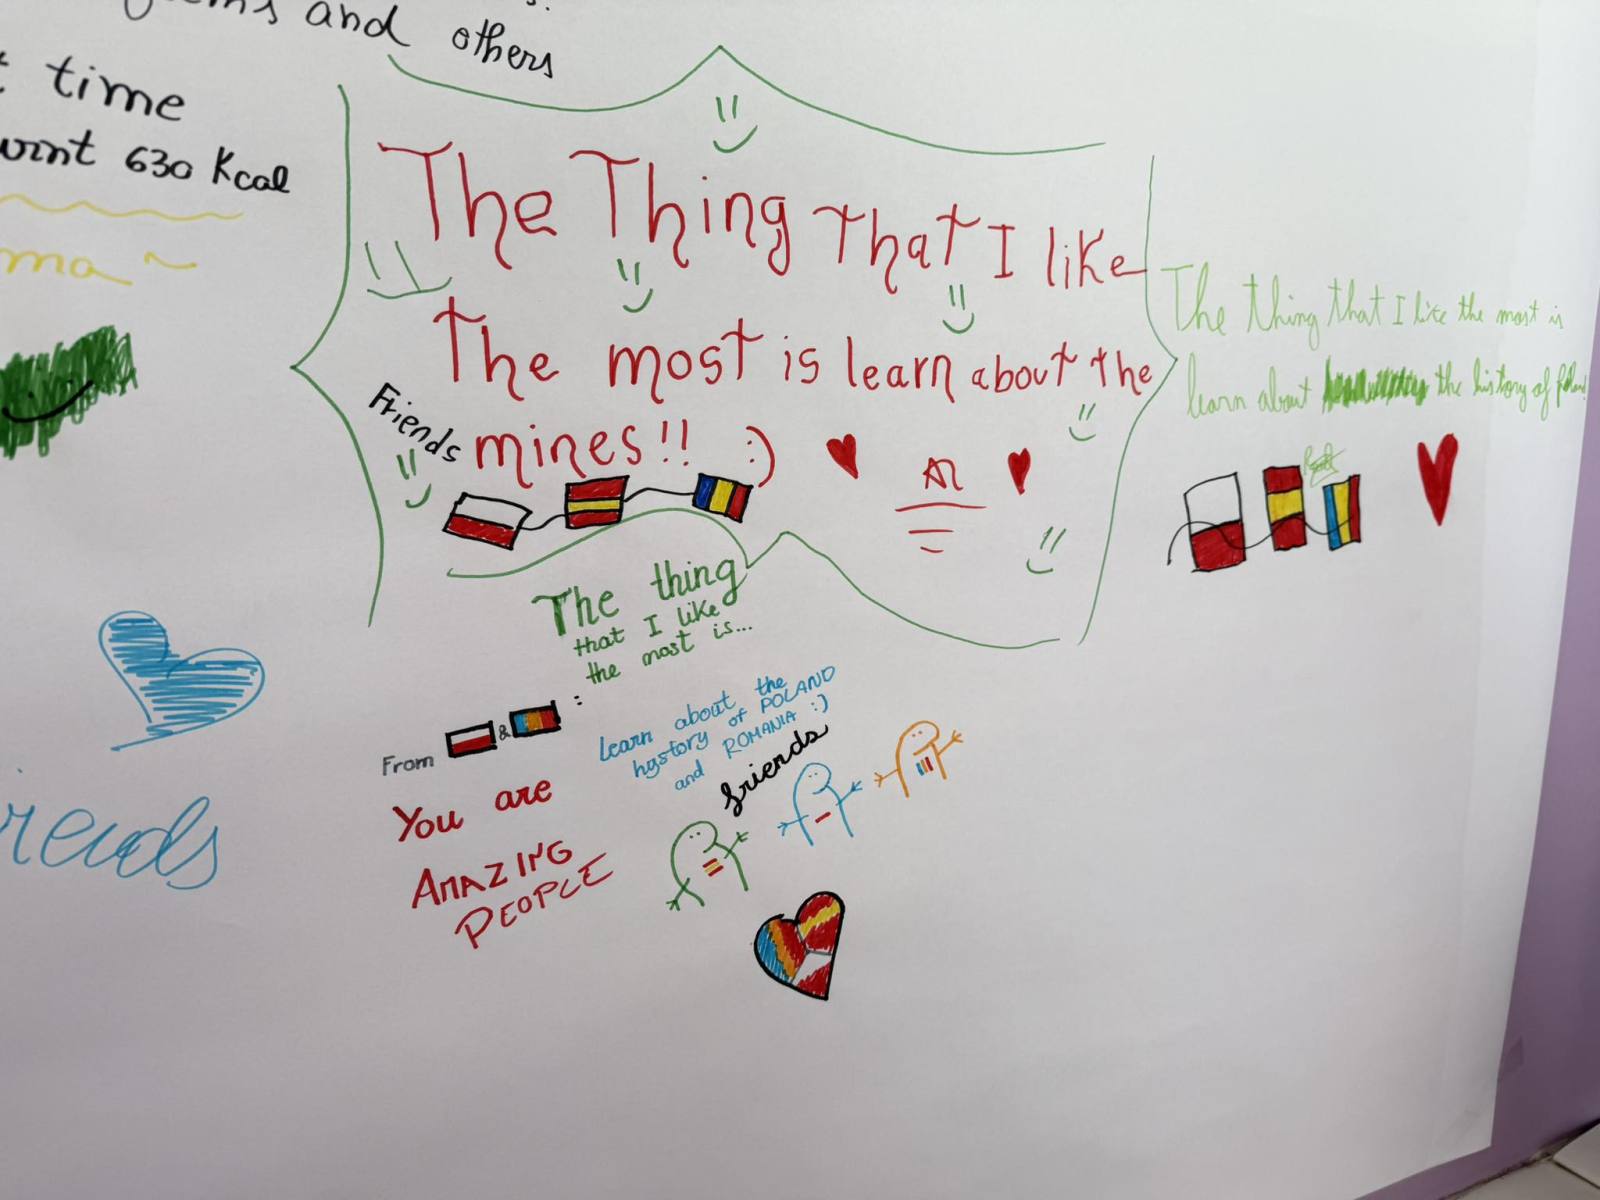 and others
time
630 Kcal
The Thing That I like
The most is learn about the
Friends
mines!! :)
The thing that I like the most is
learn about the history of
The thing
that I like
the most is...
From & :
Learn about the
hystory of POLAND
and ROMANIA :)
friends
You are
AMAZING
PEOPLE